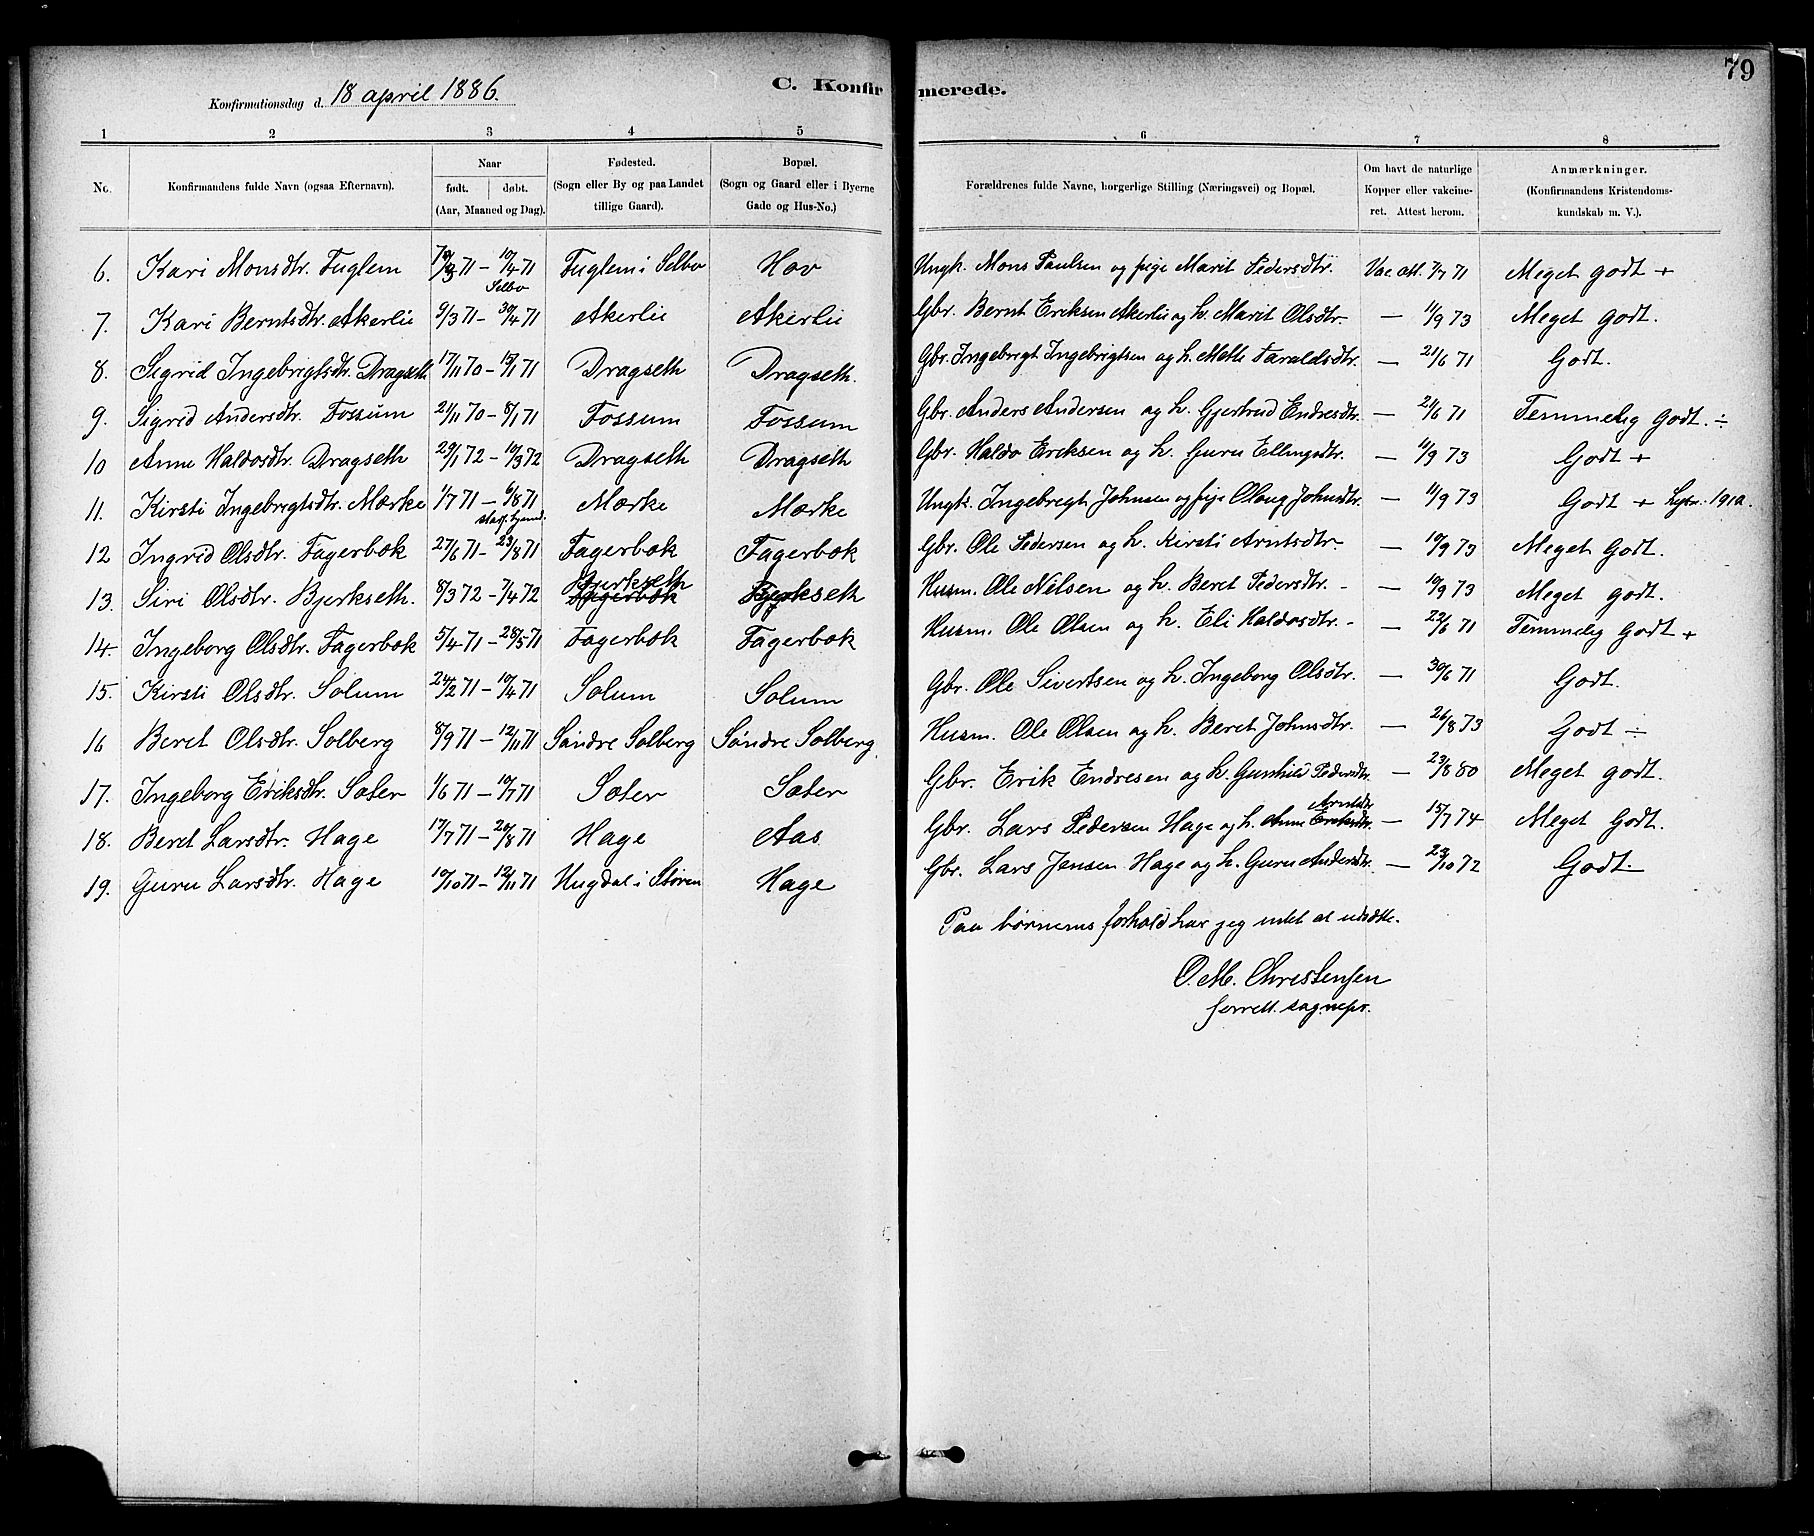 79
Konfirmationsdag d. 18 april 1886.
C. Konfirmerede.
1 2 3 4 5 6 7 8
No. Konfirmandens fulde Navn (ogsaa Efternavn). Naar født. døbt. (Aar, Maaned og Dag). Fødested. (Sogn eller By og paa Landet tillige Gaard). Bopæl. (Sogn og Gaard eller i Byerne Gade og Hus-No.) Forældrenes fulde Navne, borgerlige Stilling (Næringsvei) og Bopæl. Om havt de naturlige Kopper eller vakcineret. Attest herom. Anmærkninger. (Konfirmandens Kristendomskundskab m. V.).
6. Kari Monsdtr. Fuglem 71 – 10/4 71 Selbo Fuglem i Selbo Hov Ungk. Mons Paulsen og pige Marit Pedersdtr. Vac. att. 7/7 71 Meget godt +
7. Kari Berntsdtr. Akerlie 9/3 71 – 30/4 71 Akerlie Akerlie Gbr. Bernt Eriksen Akerlie og h. Marit Olsdtr. — 11/9 73 Meget godt.
8. Sigrid Ingebrigtsdtr. Dragseth 17/11 70 – 15/1 71 Dragseth Dragseth. Gbr. Ingebrigt Ingebrigtsen og h. Mette Taraldsdtr. — 21/6 71 Godt.
9. Sigrid Andersdtr. Fossum 21/11 70 – 8/1 71 Fossum Fossum Gbr. Anders Andersen og h. Gjertrud Endresdtr. — 21/6 71 Temmelig godt. ÷
10 Anne Haldosdtr. Dragseth 29/1 72 – 10/3 72 Dragseth Dragseth Gbr. Haldo Eriksen og h. Guru Ellingsdtr. — 11/9 73 Godt +
11. Kirsti Ingebrigtsdtr. Mærke 1/7 71 – 6/8 71 Mærke Mærke Ungk. Ingebrigt Johnsen og pige Olaug Johnsdtr. — 11/9 73 Godt + 1912.
12 Ingrid Olsdtr. Fagerbok 27/6 71 – 23/8 71 Fagerbok Fagerbok Gbr. Ole Pedersen og h. Kirsti Arntsdtr. — 10/9 73 Meget Godt.
13. Siri Olsdtr. Bjerkseth. 8/3 72 – 7/4 72 Bjerkseth Fagerbok Bjerkseth Husm. Ole Nilsen og h. Beret Pedersdtr. — 10/9 73 Meget godt.
14. Ingeborg Olsdtr. Fagerbok 5/4 71 – 28/5 71 Fagerbok Fagerbok Husm. Ole Olsen og h. Eli Haldosdtr. — 22/6 71 Temmelig Godt +
15. Kirsti Olsdtr. Solum 24/2 71 – 10/4 71 Solum Solum Gbr. Ole Sivertsen og h. Ingeborg Olsdtr. — 30/6 71 Godt.
16 Beret Olsdtr. Solberg 8/9 71 – 12/11 71 Søndre Solberg Søndre Solberg. Husm. Ole Olsen og h. Beret Johnsdtr. — 26/8 73 Godt ÷
17. Ingeborg Eriksdtr. Sæter 1/6 71 – 10/7 71 Sæter Sæter Gbr. Erik Endresen og h. Gunhild Pedersdtr. — 23/8 80 Meget godt.
18. Beret Larsdtr. Hage 17/7 71 – 20/8 71 Hage Aas Gbr. Lars Pedersen Hage og h. Anne Eriksdtr. Arntsdtr — 15/7 74 Meget Godt.
19. Guru Larsdtr. Hage 10/10 71 – 12/11 71 Hugdal i Støren Hage Gbr. Lars Jensen Hage og h. Guru Andersdtr. — 23/10 72 Godt
Paa børnenes forhold har jeg intet at udsætte.
O. M. Christensen
forrett. sognepr.